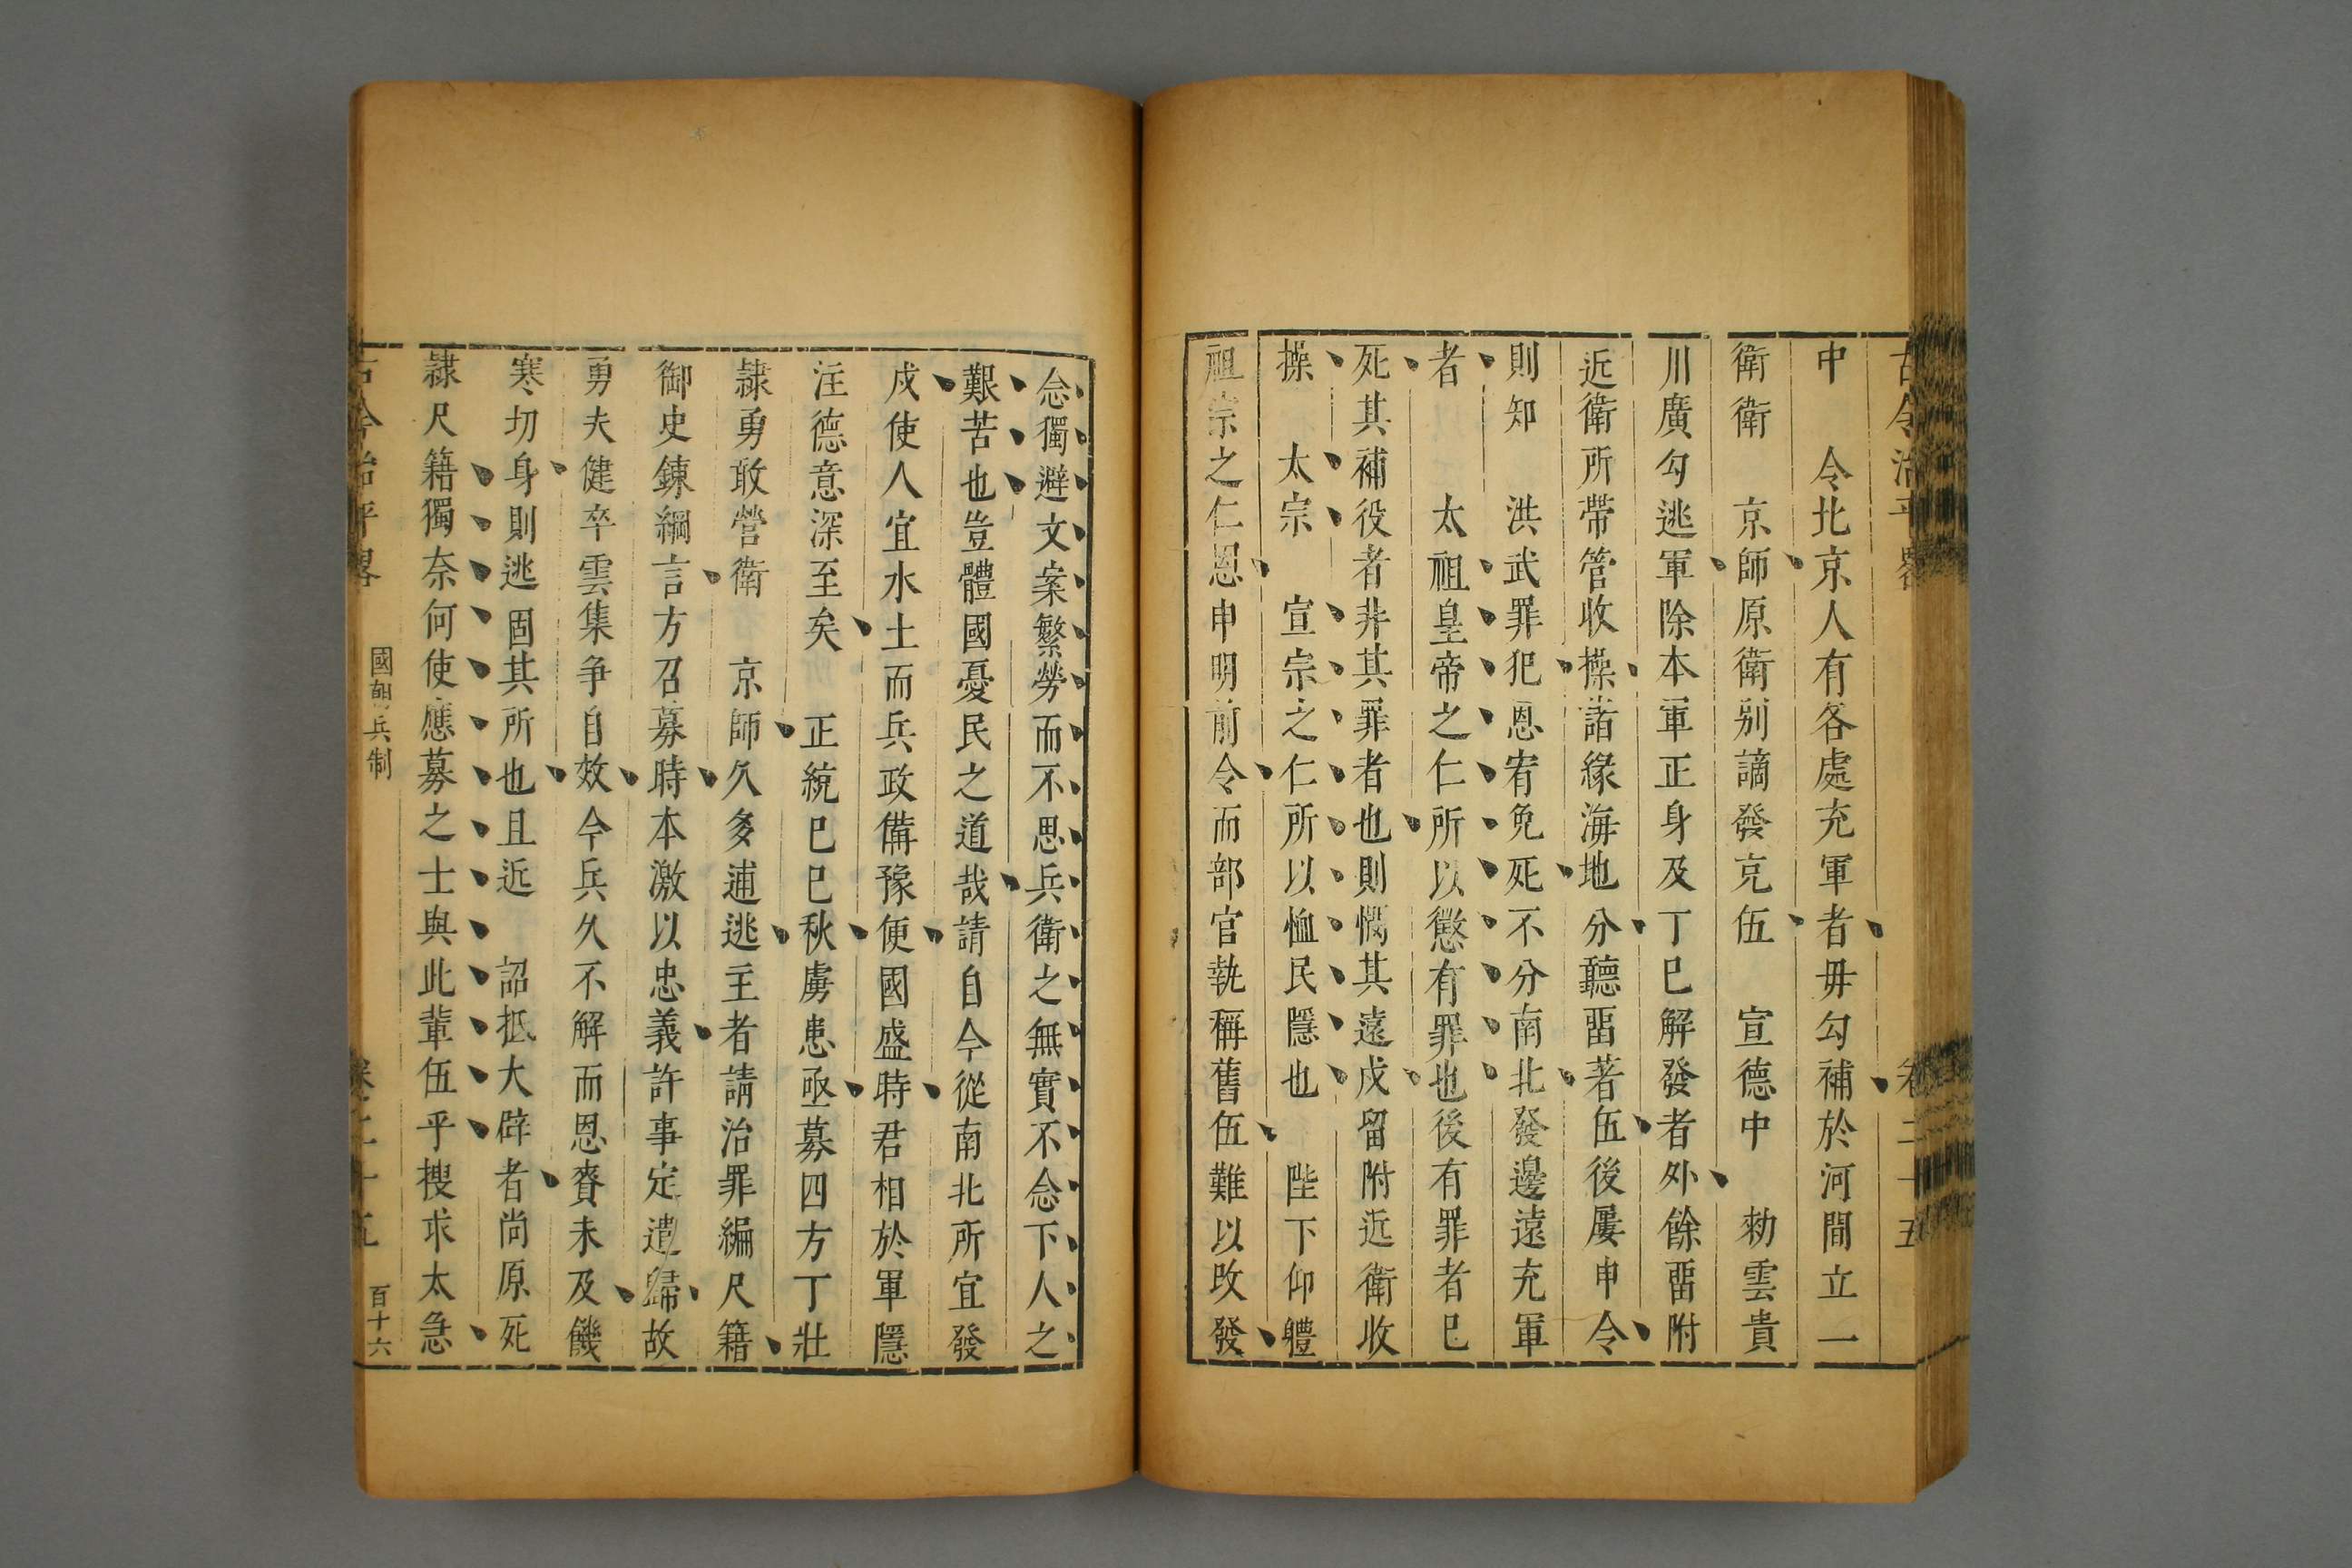 古今治平畧 卷二十五
中 令北京人有各處充軍者毋勾補於河間立一
衛衛 京師原衛別謫發克伍 宣德中 勑雲貴
川廣勾逃軍除本軍正身及丁巳解發者外餘畱附
近衛所帶管收操諸緣海地分聽畱著伍後屢申令
則知 洪武罪犯恩宥免死不分南北發邊遠充軍
者 太祖皇帝之仁所以懲有罪也後有罪者巳
死其補役者非其罪者也則憫其遠戍留附近衛收
操 太宗 宣宗之仁所以恤民隱也 陛下仰體
祖宗之仁恩申明前令而部官執稱舊伍難以改發
念獨避文案繁勞而不思兵衛之無實不念下人之
艱苦也豈體國憂民之道哉請自今從南北所宜發
戍使人宜水土而兵政備豫便國盛時君相於軍隱
注德意深至矣 正統巳巳秋虜患亟募四方丁壯
隷勇敢營衛 京師久多逋逃主者請治罪編尺籍
御史鍊綱言方召募時本激以忠義許事定遣歸故
勇夫健卒雲集争自效今兵久不解而恩賚未及饑
寒切身則逃固其所也且近 詔抵大辟者尚原死
隷尺籍獨奈何使應募之士與此輩伍乎搜求太急
古今治平畧 國朝兵制 卷二十五 百十六